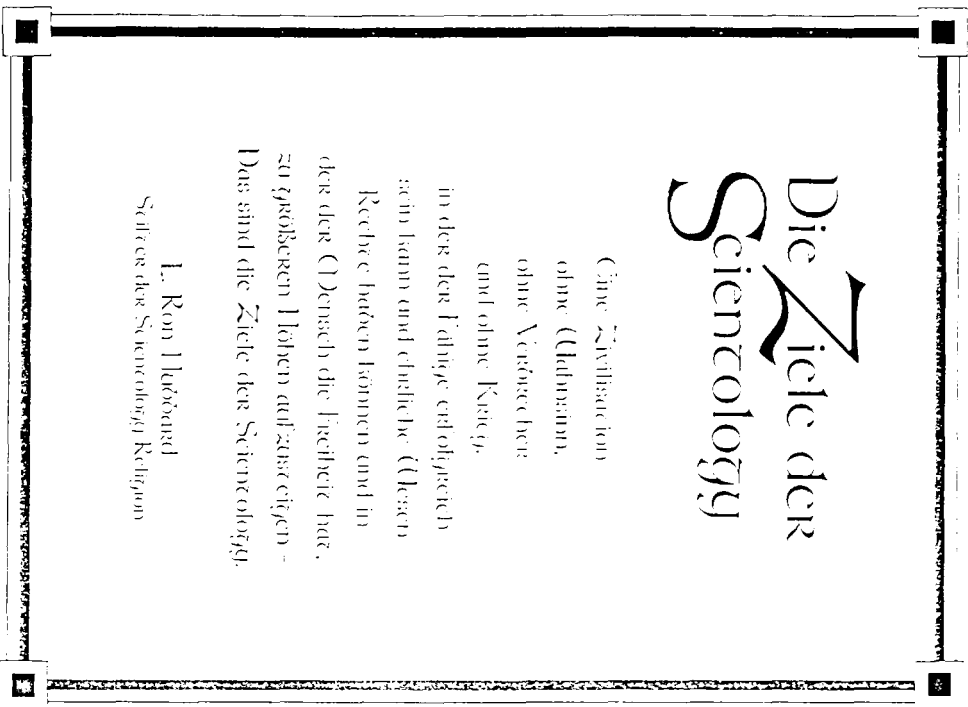 Die Ziele der
Scientology
Eine Zivilisation
ohne Wahnsinn,
ohne Verbrecher
und ohne Krieg,
in der der Fähige erfolgreich
sein kann und ehrliche Wesen
Rechte haben können und in
der der Mensch die Freiheit hat,
zu größeren Höhen aufzusteigen -
Das sind die Ziele der Scientology.
L. Ron Hubbard
Stifter der Scientology Religion